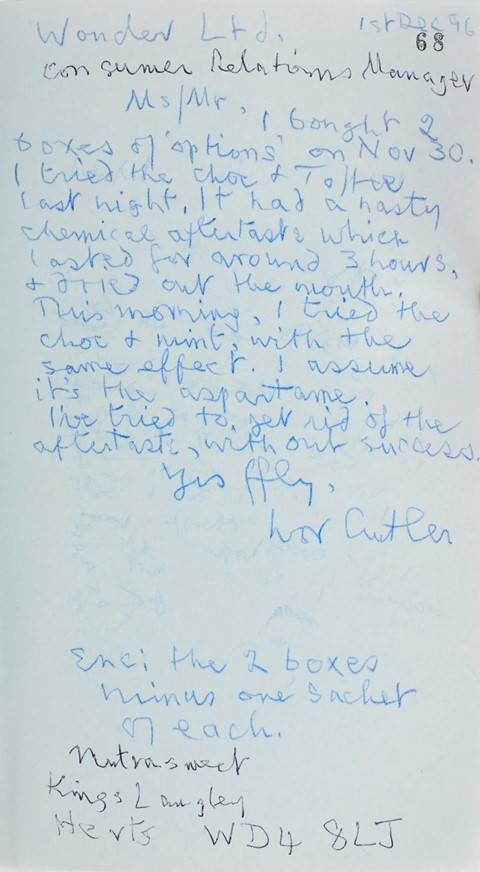 Wander Ltd. 1st Dec 96
68
Consumer Relations Manager
Ms/Mr, I bought 2
boxes of 'options' on Nov 30.
I tried the choc & Toffee
last night. It had a nasty
chemical aftertaste which
lasted for around 3 hours,
& dried out the mouth.
This morning, I tried the
choc & mint, with the
same effect. I assume
it's the aspartame.
I've tried to get rid of the
aftertaste, without success.
Yrs ffly,
Ivor Cutler
Enc: the 2 boxes
minus one sachet
of each.
Nutrasweet
Kings Langley
Herts WD4 8LJ